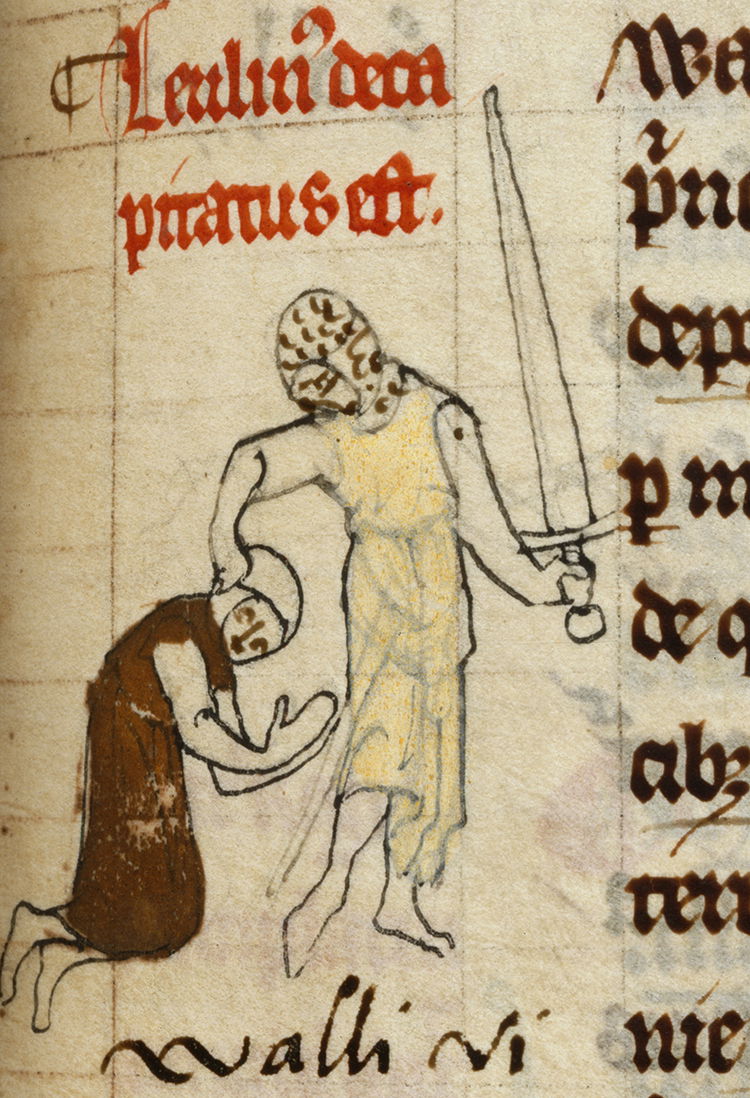 ¶ Leulinꝰ deca
pitatus est.
Walli vi
Wa
depo
p m
de q
cibz
terr
nie